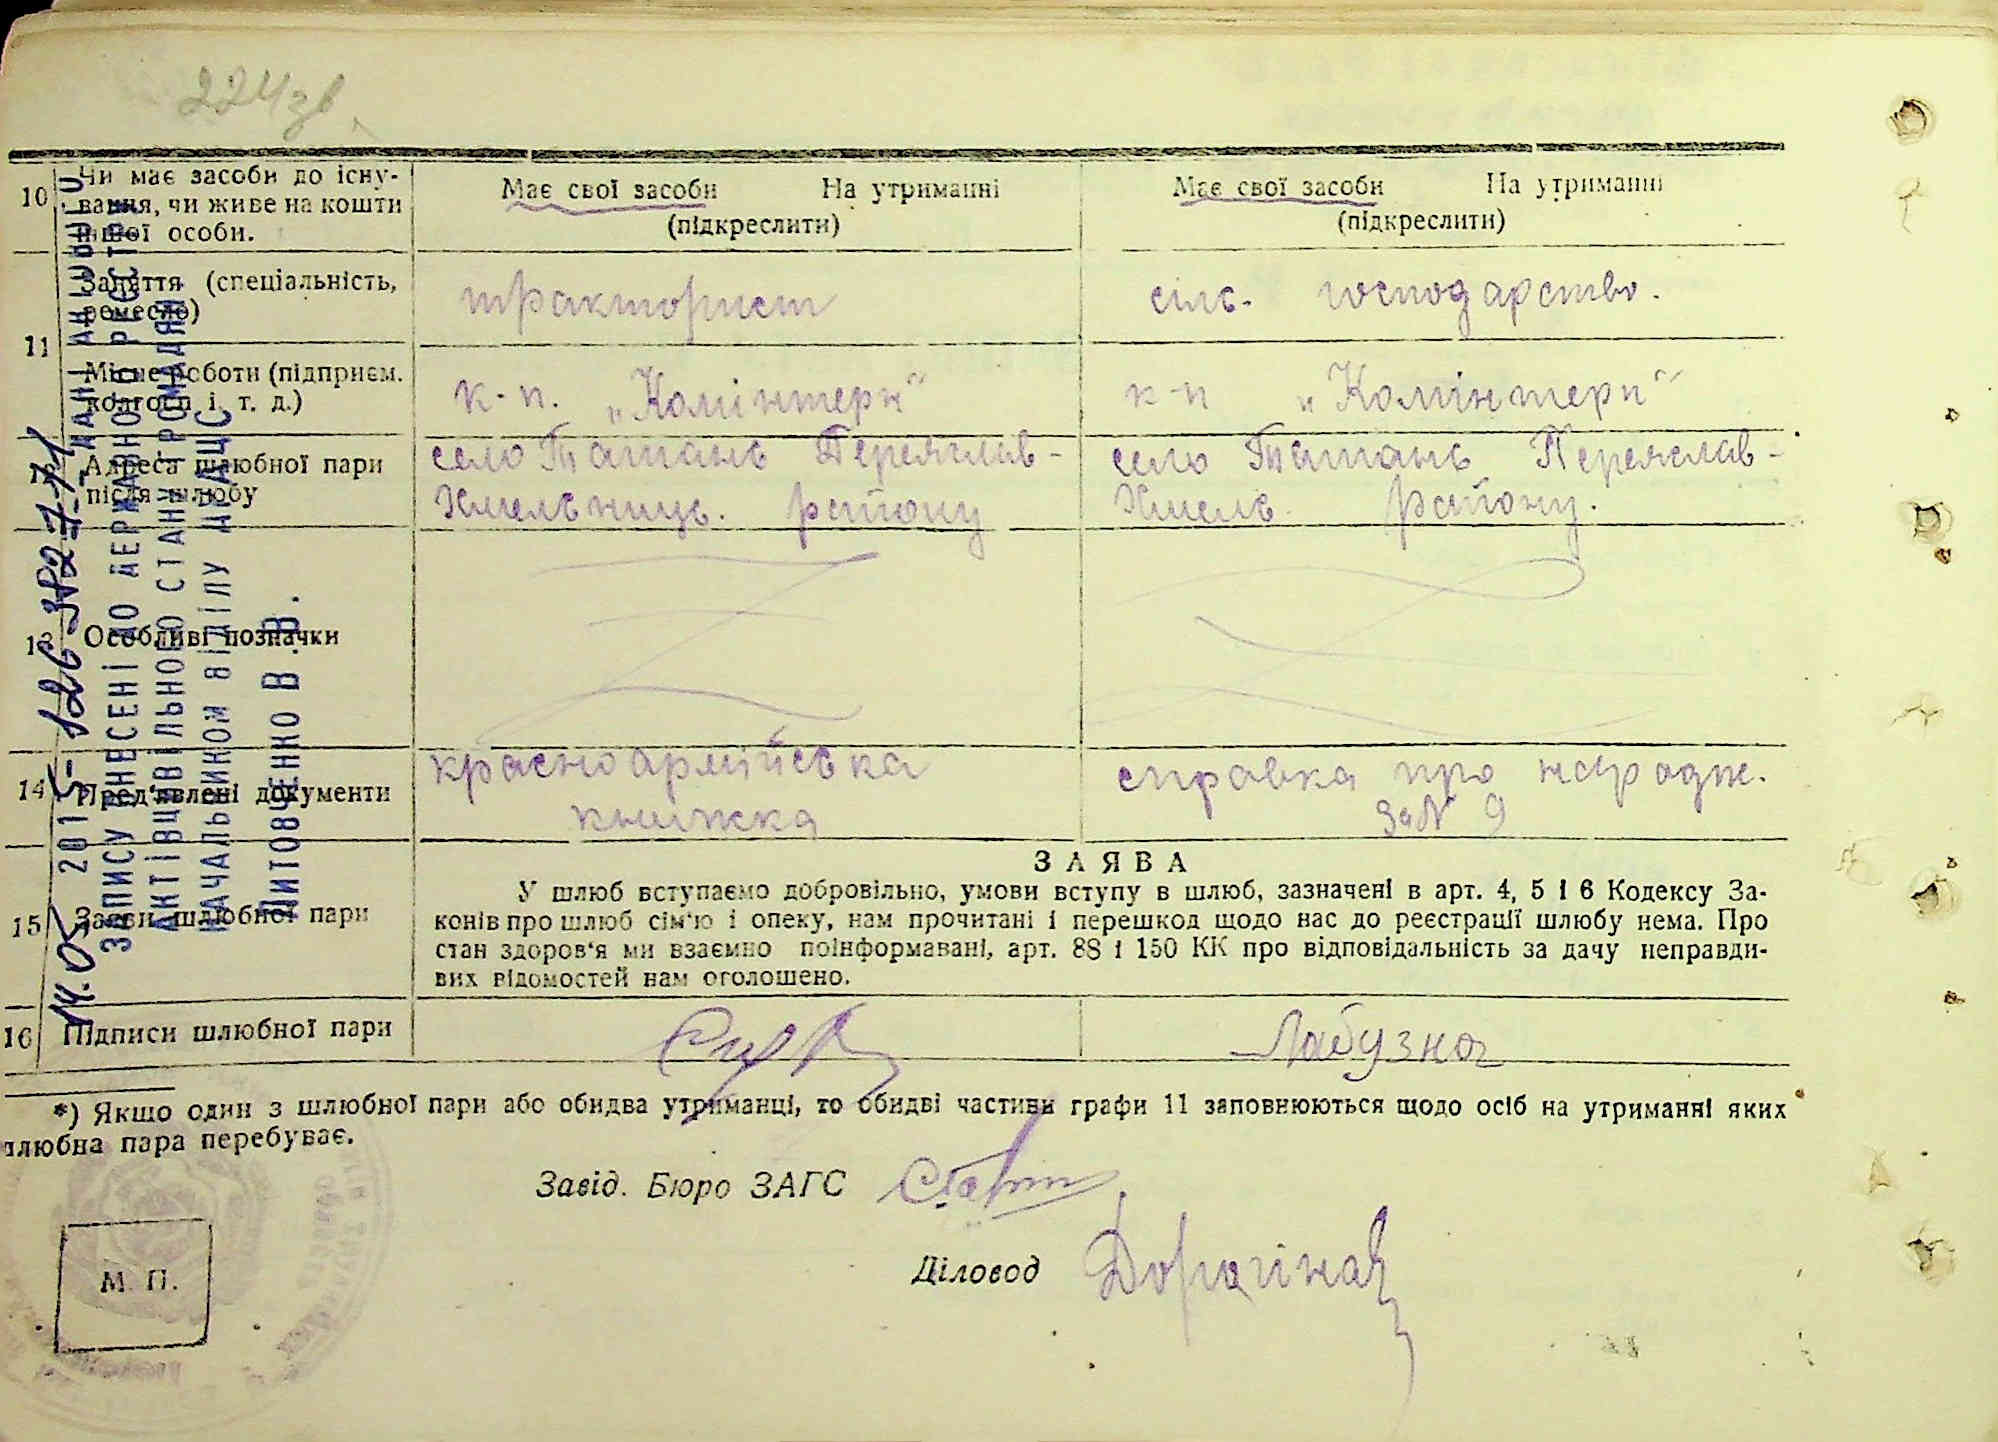 224зв
10 Чи має засоби до існу-
вання, чи живе на кошти
іншої особи.
Має свої засоби На утриманні
(підкреслити)
Має свої засоби На утриманні
(підкреслити)
11 Заняття (спеціальність,
ремесло)
тракторист
сільс. господарство.
Місце роботи (підприєм.
колгосп і. т. д.)
к-п. „Комінтерн"
к-п „Комінтерн"
12 Адреса шлюбної пари
після шлюбу
село Ташань Переяслав-
Хмельниць. району
село Ташань Переяслав-
Хмель. району.
13 Особливі позначки
14 Пред'явлені документи
красноармійська
книжка
справка про народж.
за № 9
15 Заяви шлюбної пари
ЗАЯВА
У шлюб вступаємо добровільно, умови вступу в шлюб, зазначені в арт. 4, 5 і 6 Кодексу За-
конів про шлюб сім'ю і опеку, нам прочитані і перешкод щодо нас до реєстрації шлюбу нема. Про
стан здоров'я ми взаємно поінформавані, арт. 88 і 150 КК про відповідальність за дачу неправди-
вих відомостей нам оголошено.
16 Підписи шлюбної пари
Лабузна
*) Якщо один з шлюбної пари або обидва утриманці, то обидві частини графи 11 заповнюються щодо осіб на утриманні яких
шлюбна пара перебуває.
Завід. Бюро ЗАГС
Діловод
М. П.
14.05 2015
ЗАПИСУ ВНЕСЕНІ ДО ДЕРЖАВНОГО РЕЄСТРУ
АКТІВ ЦИВІЛЬНОГО СТАНУ ГРОМАДЯН
НАЧАЛЬНИКОМ ВІДДІЛУ ДРАЦС
Литовченко В.В.